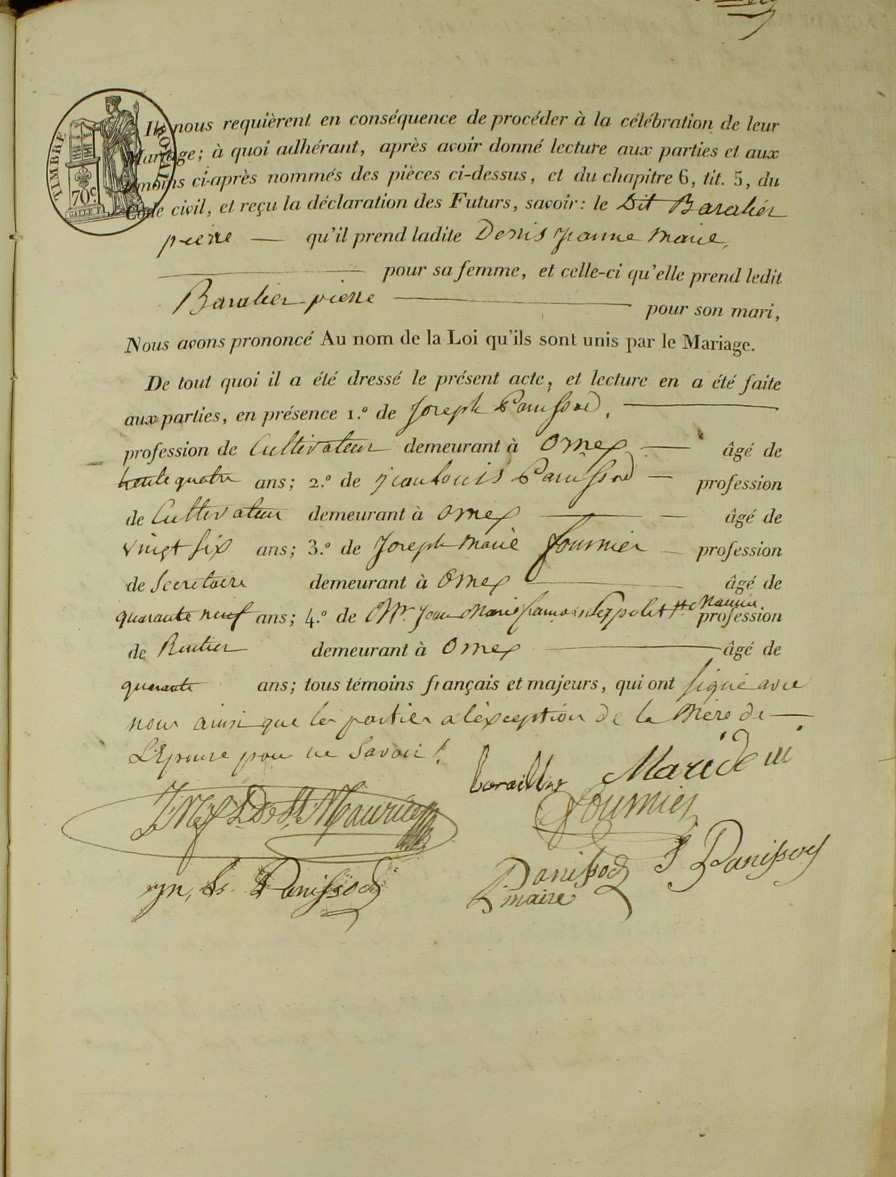 TIMBRE ROYAL
70 c.
Ils nous requièrent en conséquence de procéder à la célébration de leur
Mariage; à quoi adhérant, après avoir donné lecture aux parties et aux
témoins ci-après nommés des pièces ci-dessus, et du chapitre 6, tit. 5, du
Code civil, et reçu la déclaration des Futurs, savoir: le Dit Baralier
pierre — qu'il prend ladite Denis Jeanne Marie,
pour sa femme, et celle-ci qu'elle prend ledit
Baralier pierre — pour son mari,
Nous avons prononcé Au nom de la Loi qu'ils sont unis par le Mariage.
De tout quoi il a été dressé le présent acte, et lecture en a été faite
aux parties, en présence 1.º de Joseph Panissod,
profession de Cultivateur demeurant à Omex — âgé de
trente quatre ans; 2.º de jean Louis Panissod — profession
de Cultivateur demeurant à Omex — âgé de
vingt six ans; 3.º de Joseph Marie fournier — profession
de Secretaire demeurant à Omex — âgé de
quarante neuf ans; 4.º de Mr. Jean Marie françois profession
de Rentier demeurant à Omex — âgé de
quarante ans; tous témoins français et majeurs, qui ont signé avec
nous ainsi que les parties a l'éxception de la Mère de
L'Epouse pour ne Savoir /.
barailler Marie deni
De St. Maurice fournier
jn, Ls. Panissod Panissod J Panissod
maire